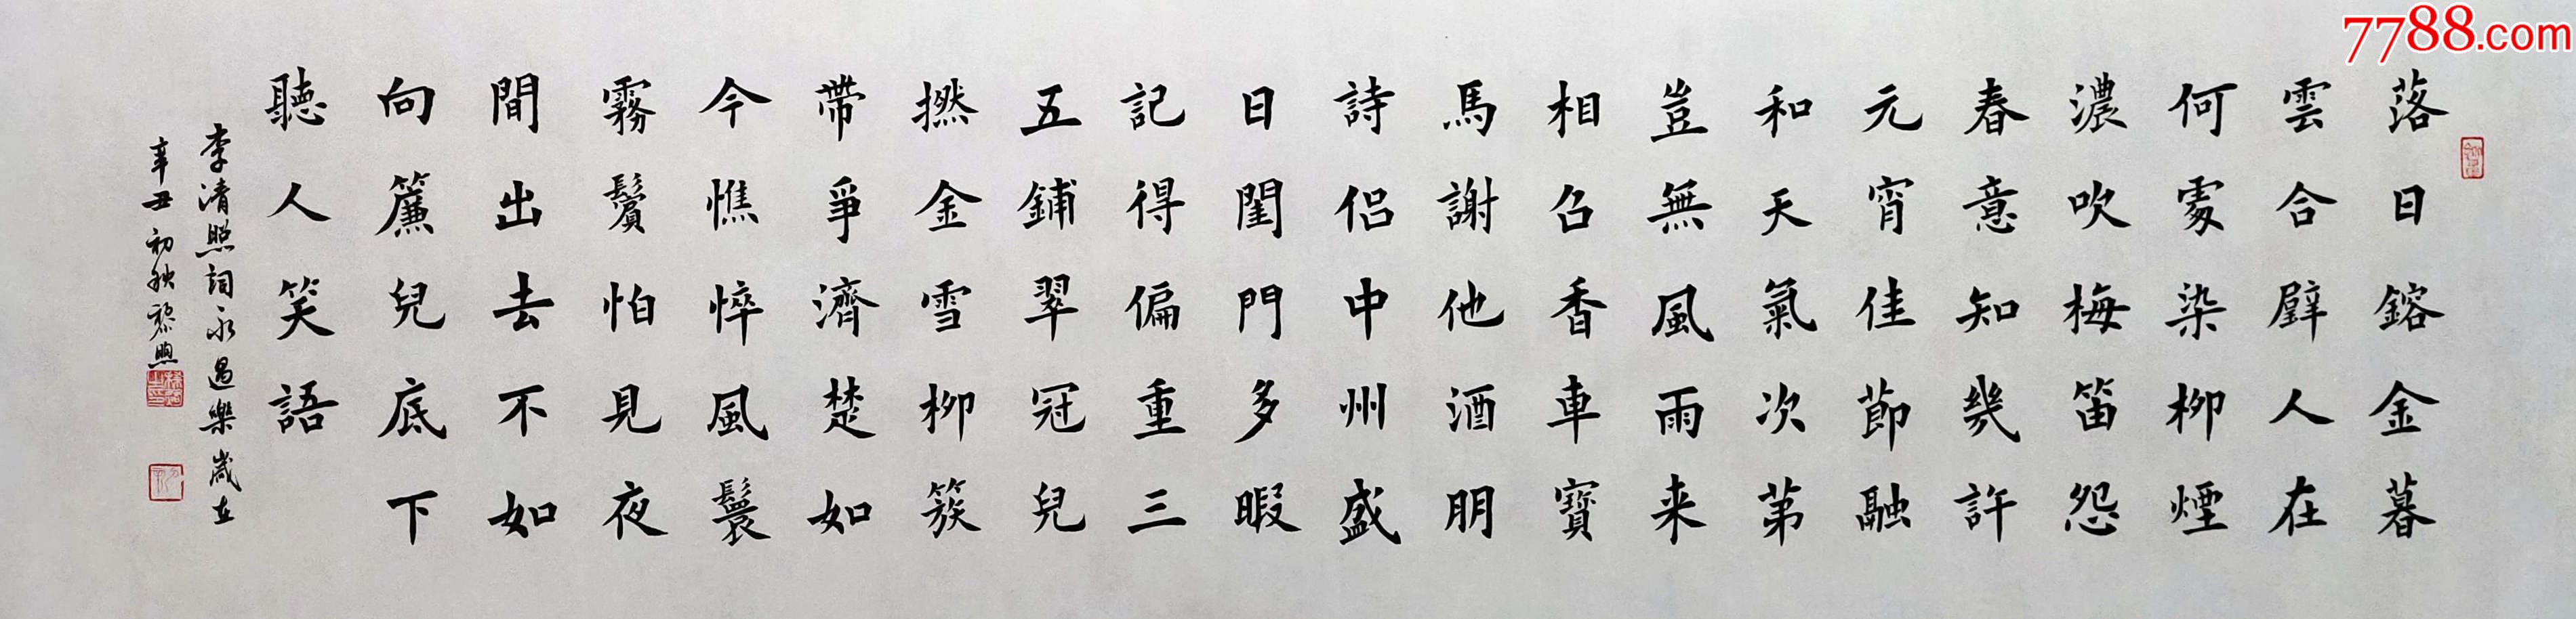 落日鎔金暮
雲合璧人在
何處染柳煙
濃吹梅笛怨
春意知幾許
元宵佳節融
和天氣次第
豈無風雨来
相召香車寶
馬謝他酒朋
詩侶中州盛
日閨門多暇
記得偏重三
五鋪翠冠兒
撚金雪柳簇
帶爭濟楚如
今憔悴風鬟
霧鬢怕見夜
間出去不如
向簾兒底下
聽人笑語
李清照詞永遇樂歲在
辛丑初秋黎煦
7788.com